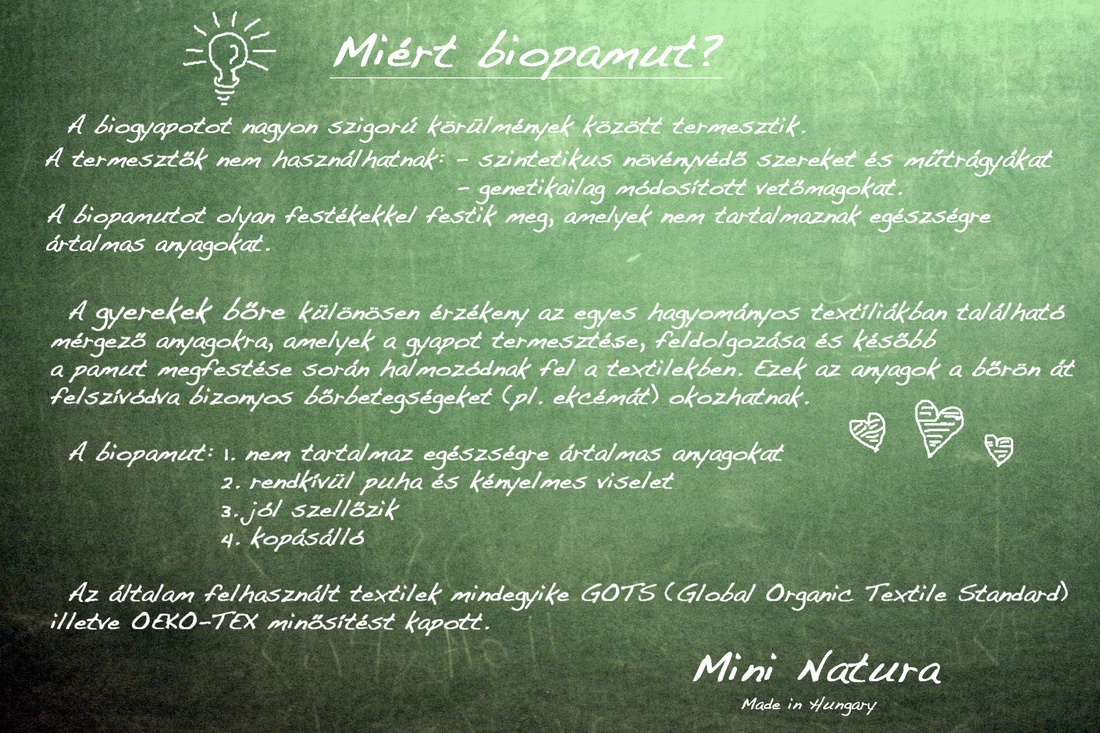 Miért biopamut?
A biogyapotot nagyon szigorú körülmények között termesztik.
A termesztők nem használhatnak: - szintetikus növényvédő szereket és műtrágyákat
- genetikailag módosított vetőmagokat.
A biopamutot olyan festékekkel festik meg, amelyek nem tartalmaznak egészségre
ártalmas anyagokat.
A gyerekek bőre különösen érzékeny az egyes hagyományos textíliákban található
mérgező anyagokra, amelyek a gyapot termesztése, feldolgozása és később
a pamut megfestése során halmozódnak fel a textilekben. Ezek az anyagok a bőrön át
felszívódva bizonyos bőrbetegségeket (pl. ekcémát) okozhatnak.
A biopamut: 1. nem tartalmaz egészségre ártalmas anyagokat
2. rendkívül puha és kényelmes viselet
3. jól szellőzik
4. kopásálló
Az általam felhasznált textilek mindegyike GOTS (Global Organic Textile Standard)
illetve OEKO-TEX minősítést kapott.
Mini Natura
Made in Hungary